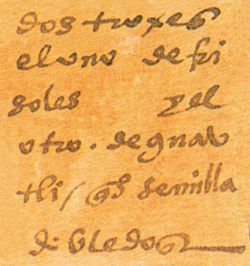 dos troxes
el uno de fri
soles y el
otro. de guau
tli / q̃s semilla
de bledos